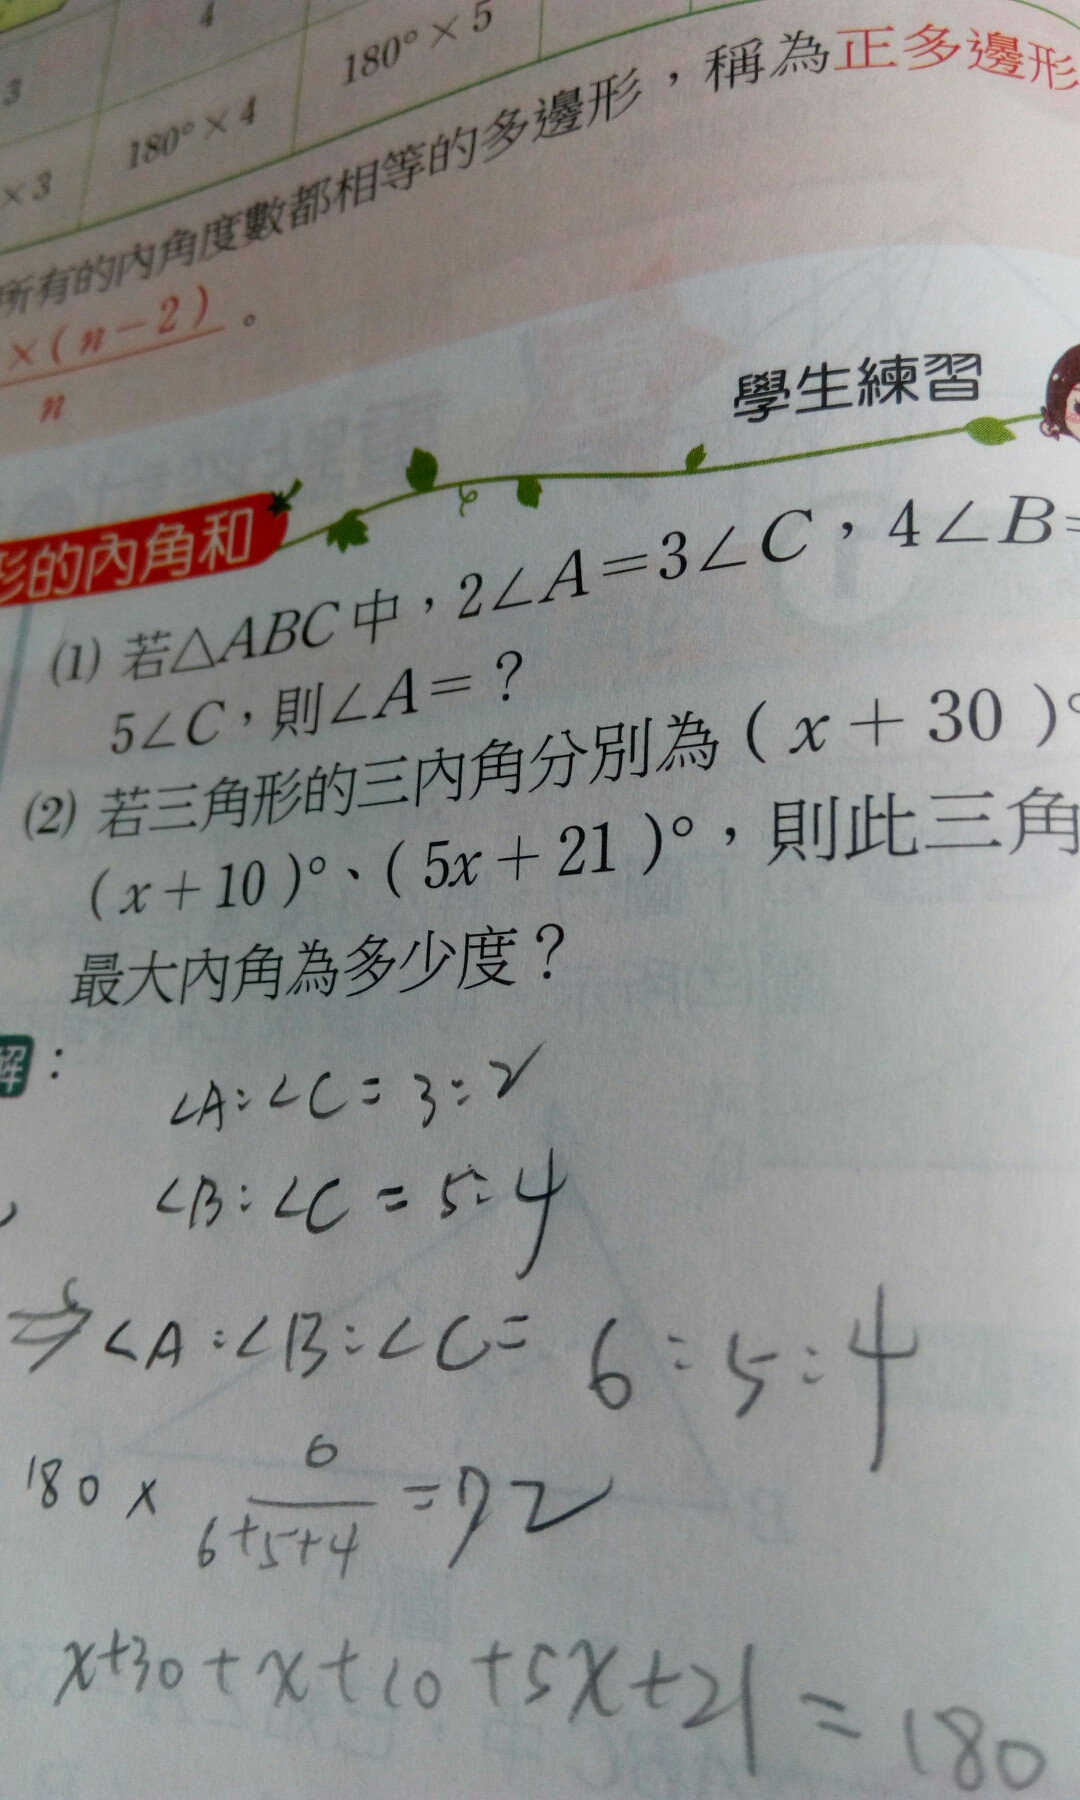 4
180° × 5
3
180° × 4
× 3
所有的內角度數都相等的多邊形，稱為正多邊形
×(n－2)。
n
學生練習
形的內角和
(1) 若△ABC中，2∠A＝3∠C，4∠B＝
5∠C，則∠A＝？
(2) 若三角形的三內角分別為(x＋30)°
(x＋10)°、(5x＋21)°，則此三角
最大內角為多少度？
解：
∠A:∠C=3:2
∠B:∠C=5:4
⇒∠A:∠B:∠C=6:5:4
180×6/(6+5+4)=72
x+30+x+10+5x+21=180